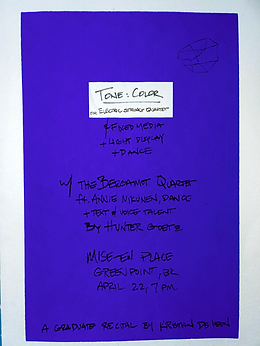 TONE: COLOR
FOR ELECTRIC STRING QUARTET
& FIXED MEDIA
+ LIGHT DISPLAY
+ DANCE
W/ THE BERGAMOT QUARTET
ft. ANNIE NIKUNEN, DANCE
+ TEXT & VOICE TALENT
BY HUNTER GOETZ
MISE-EN PLACE
GREENPOINT, BK
APRIL 22, 7 PM.
A GRADUATE RECITAL BY